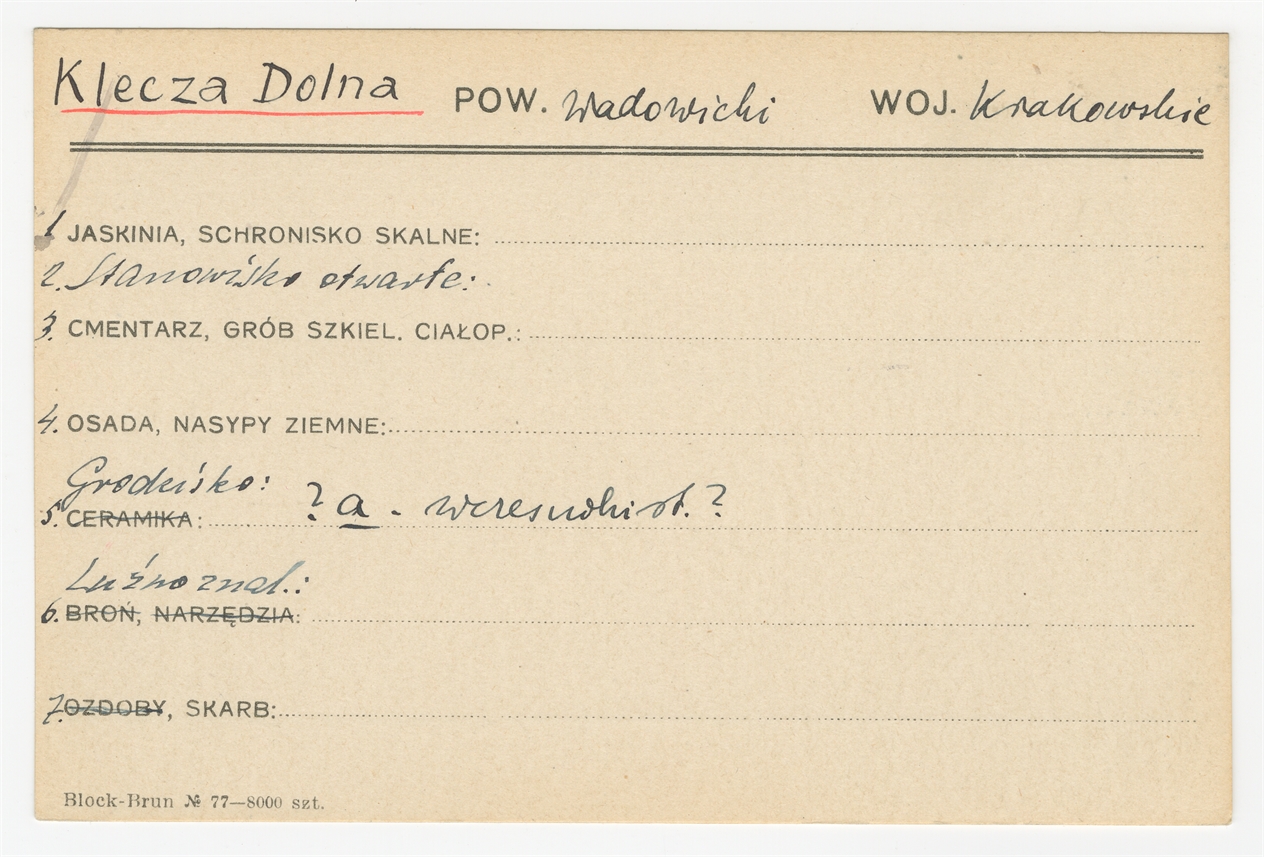 Klecza Dolna POW. Wadowicki WOJ. Krakowskie
1 JASKINIA, SCHRONISKO SKALNE:
2. Stanowisko otwarte:
3. CMENTARZ, GRÓB SZKIEL. CIAŁOP.:
4. OSADA, NASYPY ZIEMNE:
Grodzisko:
5. CERAMIKA: ? a - wczesnohist. ?
Luźno znal.:
6. BROŃ, NARZĘDZIA:
7. OZDOBY, SKARB:
Block-Brun № 77—8000 szt.